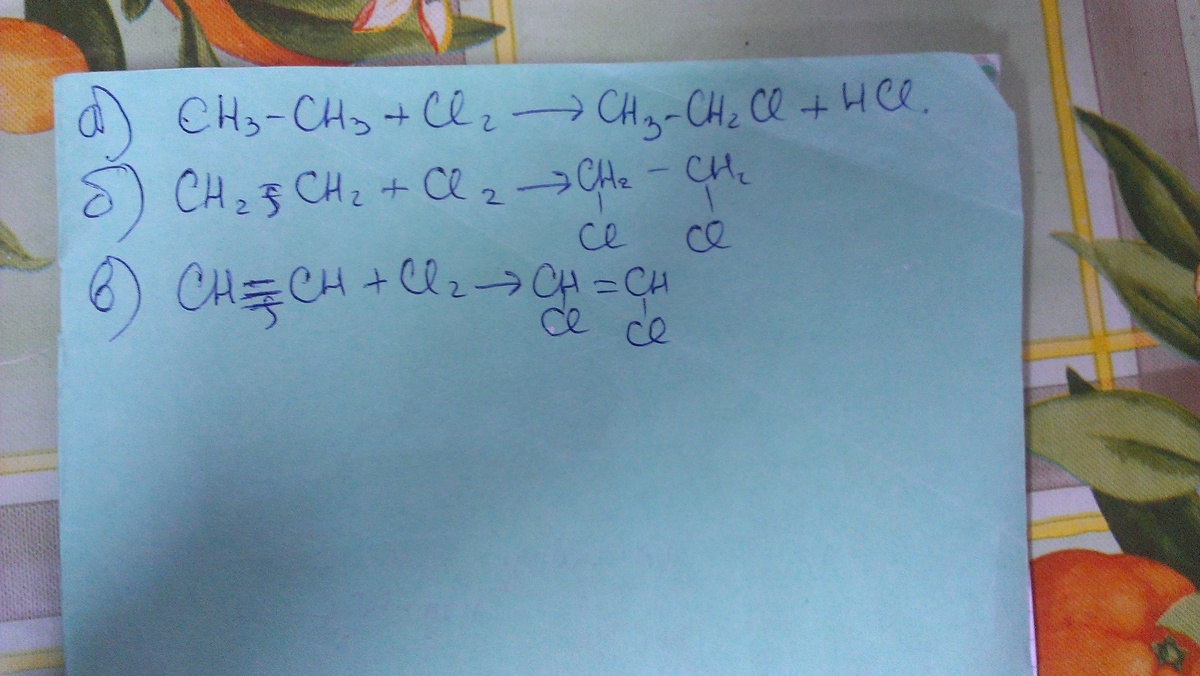 а) CH₃-CH₃ + Cl₂ → CH₃-CH₂Cl + HCl.
б) CH₂ = CH₂ + Cl₂ → CH₂ - CH₂
Cl Cl
в) CH ≡ CH + Cl₂ → CH = CH
Cl Cl